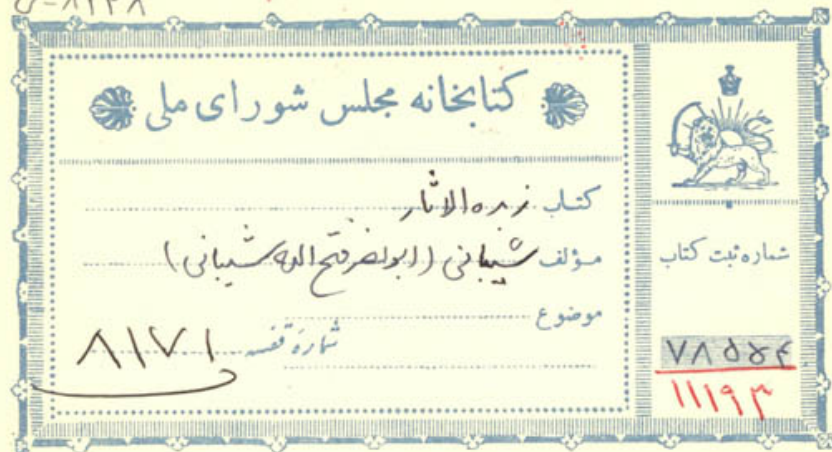 کتابخانه مجلس شورای ملی
کتاب زبده الاثار
مؤلف شیبانی (ابونصر فتح الله شیبانی)
موضوع
شماره قفسه ۸۱۷۱
شماره ثبت کتاب
۱۱۱۹۳